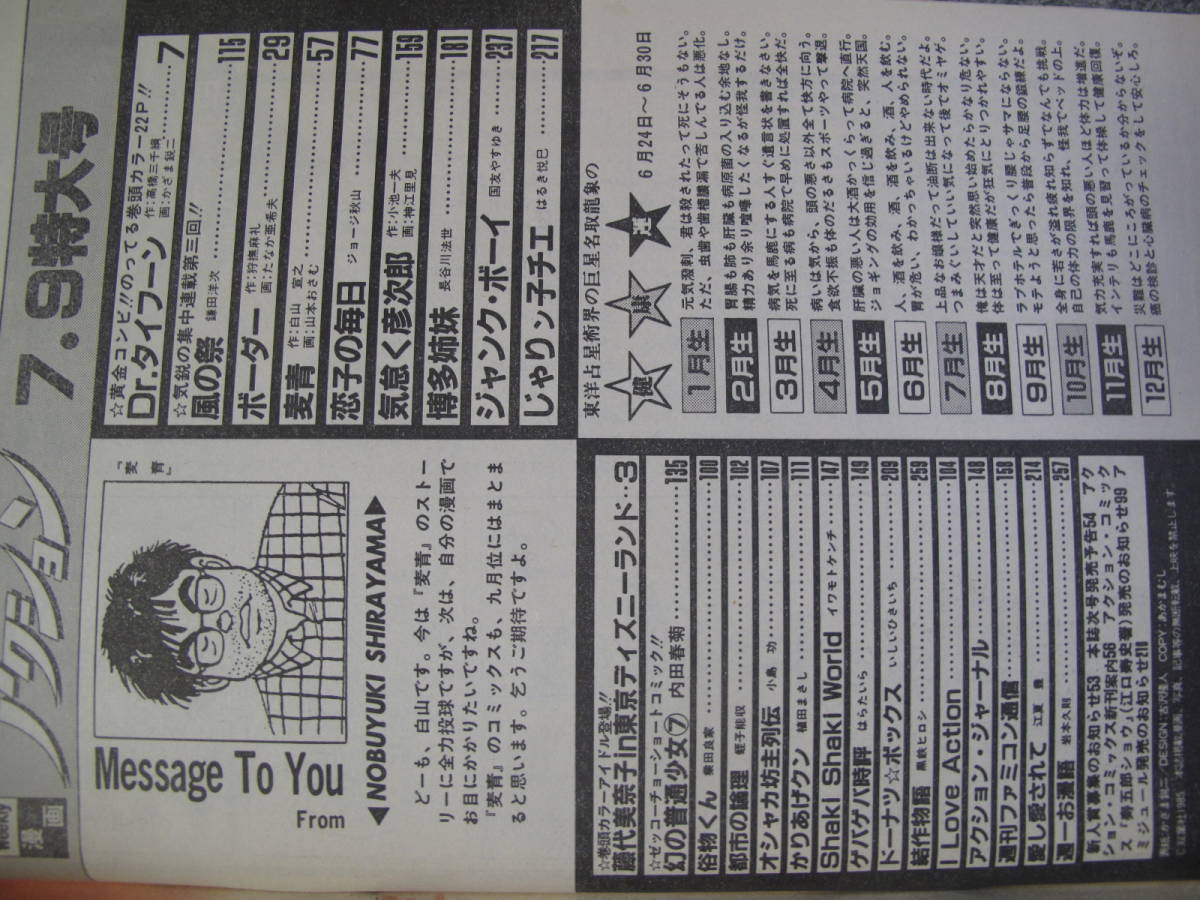 Weekly
漫画
アクション
7・9特大号
☆黄金コンビ!!のってる巻頭カラー22P!!
Dr.タイフーン 作:高橋三千綱 画:かざま鋭二 7
☆気鋭の集中連載第三回!!
風の祭 鎌田洋次 115
ボーダー 作:狩撫麻礼 画:たなか亜希夫 29
麦青 作:白山宣之 画:山本おさむ 57
恋子の毎日 ジョージ秋山 77
気怠く彦次郎 作:小池一夫 画:神江里見 159
博多姉妹 長谷川法世 181
ジャンク・ボーイ 国友やすゆき 237
じゃりン子チエ はるき悦巳 217
『麦青』
Message To You
From
◀NOBUYUKI SHIRAYAMA▶
どーも、白山です。今は『麦青』のストー
リーに全力投球ですが、次は、自分の漫画で
お目にかかりたいですね。
『麦青』のコミックスも、九月位にはまとま
ると思います。乞うご期待ですよ。
東洋占星術界の巨星名取龍象の
健康運
6月24日〜6月30日
1月生 元気溌剌、君は殺されたって死にそうもない。
ただ、虫歯や歯槽膿漏で苦しんでる人は悪化。
2月生 胃腸も肺も肝臓も病原菌の入り込む余地なし。
精力あり余り喧嘩したくなるが怪我するだけ。
3月生 病気を馬鹿にする人すぐ遺言状を書きなさい。
死に至る病も病院で早めに処置すれば全快だ。
4月生 病いは気から、頭の悪さ以外全て快方に向う。
食欲不振も体のだるさもスポーツやって撃退。
5月生 肝臓の悪い人は大酒かっくらって病院へ直行。
ジョギングの効用を信じ過ぎると、突然天国。
6月生 人、酒を飲み、酒、酒を飲み、酒、人を飲む。
胃が危い、わかっちゃいるけどやめられない。
7月生 上品なお嬢様だって油断は出来ない時代だよ。
つまみぐいしていい気になって後でオミヤゲ。
8月生 俺は天才だと突然思い始めたらかなり危ない。
体は至って健康だが狂気にとりつかれやすい。
9月生 ラブホテルでぎっくり腰じゃサマにならない。
モテようと思ったら普段から足腰の鍛練だよ。
10月生 全身に若さが溢れ疲れ知らずでなんでも挑戦。
自己の体力の限界を知れ、怪我でベッドの上。
11月生 気力充実すれば頭の悪い人ほど体力は増進だ。
インテリも馬鹿を見習って体操して健康回復。
12月生 災難はどこにころがっているか分からないぞ。
癌の検診と心臓病のチェックをして安心しろ。
☆巻頭カラーアイドル登場!!
藤代美奈子in東京ディズニーランド 3
☆ゼッコーチョーショートコミック!!
幻の普通少女⑦ 内田春菊 135
俗物くん 柴田良家 100
都市の倫理 蛭子能収 102
オシャカ坊主列伝 小島功 107
かりあげクン 植田まさし 111
Shaki Shaki World イワモトケンチ 147
ゲバゲバ時評 はらたいら 149
ドーナツ☆ボックス いしいひさいち 209
結作物語 黒鉄ヒロシ 259
I Love Action 104
アクション・ジャーナル 148
週刊ファミコン通信 158
愛し愛されて 江夏豊 214
週一お漫語 岩本久則 257
新人賞募集のお知らせ53 本誌次号発売予告54 アク
ション・コミックス新刊案内58 アクション・コミック
ス『寿五郎ショウ』(江口寿史著)発売のお知らせ99 ア
ミジュール発売のお知らせ211